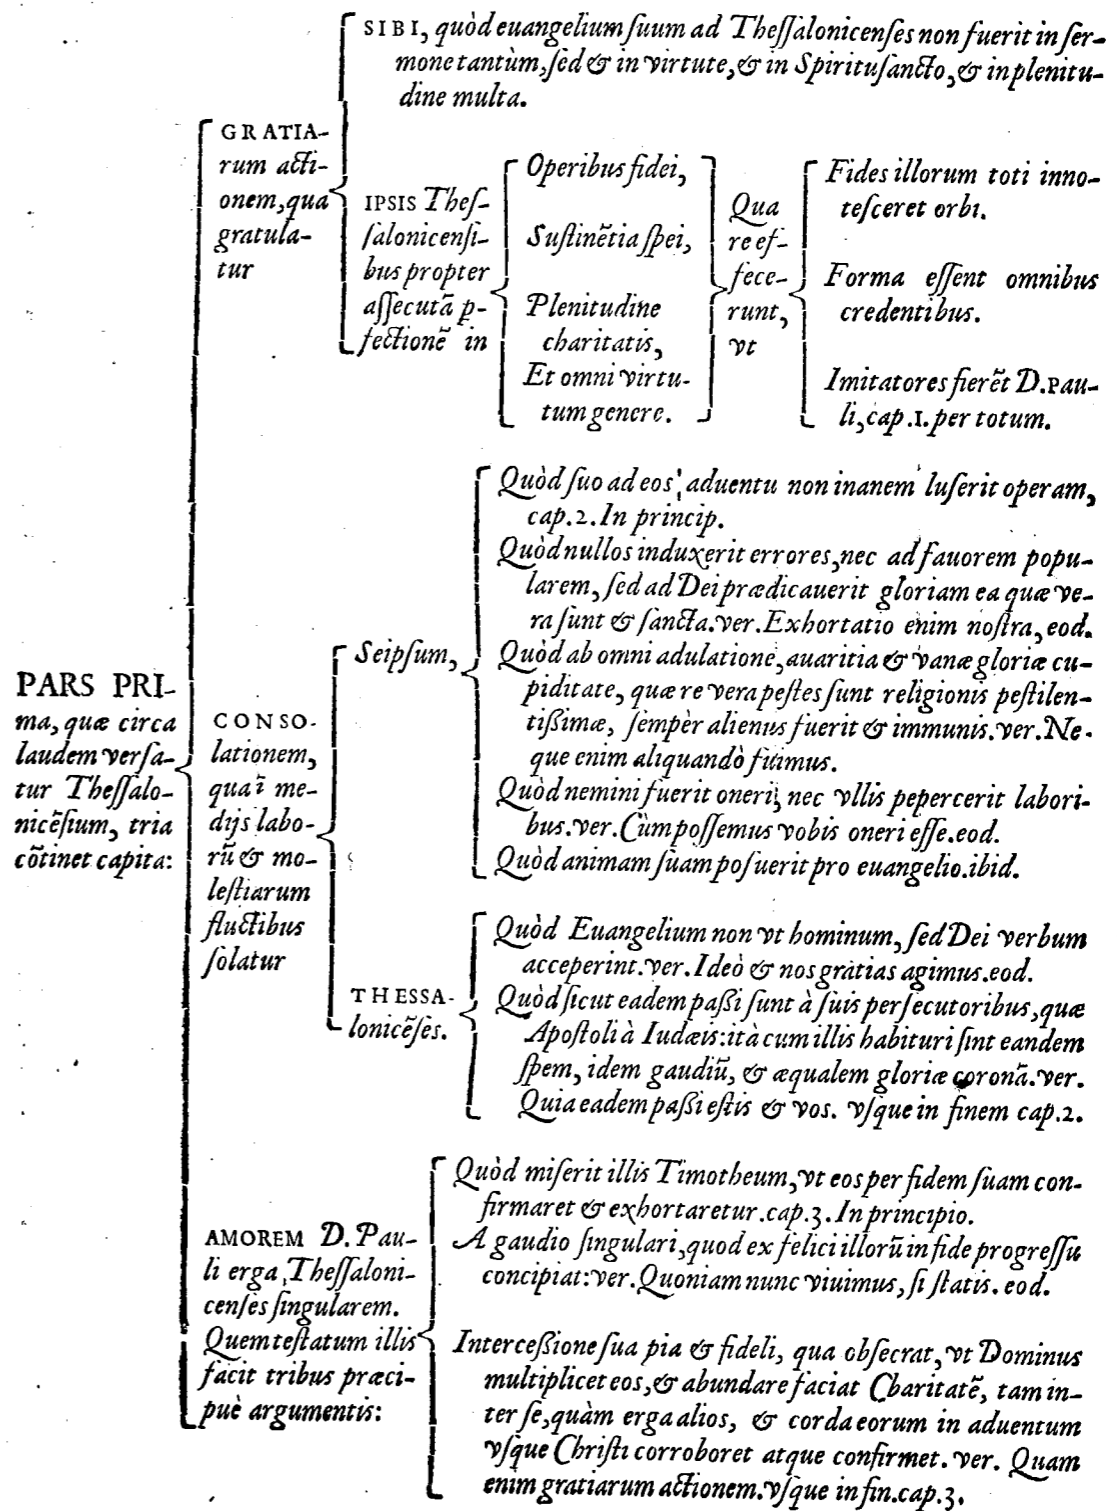 PARS PRI-
ma, quæ circa
laudem versa-
tur Thessalo-
nicẽsium, tria
cõtinet capita:
GRATIA-
rum acti-
onem, qua
gratula-
tur
SIBI, quòd euangelium suum ad Thessalonicenses non fuerit in ser-
mone tantùm, sed & in virtute, & in Spiritu sancto, & in plenitu-
dine multa.
IPSIS Thes-
salonicensi-
bus propter
assecutã p-
fectionẽ in
Operibus fidei,
Sustinẽtia spei,
Plenitudine
charitatis,
Et omni virtu-
tum genere.
Qua
re ef-
fece-
runt,
vt
Fides illorum toti inno-
tesceret orbi.
Forma essent omnibus
credentibus.
Imitatores fierẽt D. Pau-
li, cap.1. per totum.
CONSO-
lationem,
qua ĩ me-
dijs labo-
rũ & mo-
lestiarum
fluctibus
solatur
Seipsum,
Quòd suo ad eos aduentu non inanem luserit operam,
cap.2. In princip.
Quòd nullos induxerit errores, nec ad fauorem popu-
larem, sed ad Dei prædicauerit gloriam ea quæ ve-
ra sunt & sancta. ver. Exhortatio enim nostra, eod.
Quòd ab omni adulatione, auaritia & vanæ gloriæ cu-
piditate, quæ re vera pestes sunt religionis pestilen-
tißimæ, sempèr alienus fuerit & immunis. ver. Ne-
que enim aliquandò fuimus.
Quòd nemini fuerit oneri, nec vllis pepercerit labori-
bus. ver. Cùm possemus vobis oneri esse. eod.
Quòd animam suam posuerit pro euangelio. ibid.
THESSA-
lonicẽses.
Quòd Euangelium non vt hominum, sed Dei verbum
acceperint. ver. Ideò & nos gratias agimus. eod.
Quòd sicut eadem paßi sunt à suis persecutoribus, quæ
Apostoli à Iudæis: ità cum illis habituri sint eandem
spem, idem gaudiũ, & æqualem gloriæ coronã. ver.
Quia eadem paßi estis & vos. vsque in finem cap.2.
AMOREM D. Pau-
li erga Thessaloni-
censes singularem.
Quem testatum illis
facit tribus præci-
puè argumentis:
Quòd miserit illis Timotheum, vt eos per fidem suam con-
firmaret & exhortaretur. cap.3. In principio.
A gaudio singulari, quod ex felici illorũ in fide progressu
concipiat: ver. Quoniam nunc viuimus, si statis. eod.
Interceßione sua pia & fideli, qua obsecrat, vt Dominus
multiplicet eos, & abundare faciat Charitatẽ, tam in-
ter se, quàm erga alios, & corda eorum in aduentum
vsque Christi corroboret atque confirmet. ver. Quam
enim gratiarum actionem. vsque in fin. cap.3.